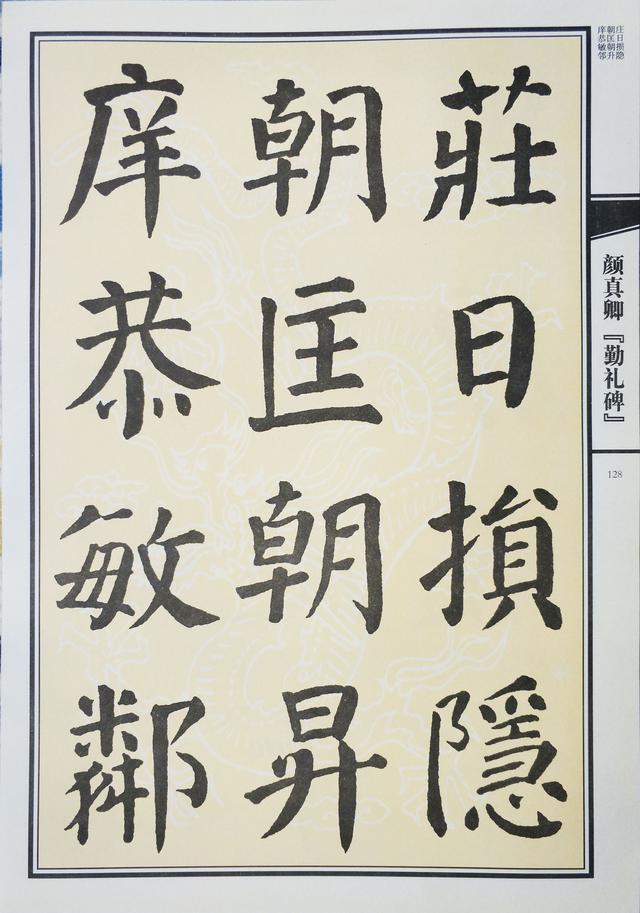 庄日损隐
朝匡朝升
庠恭敏邻
颜真卿『勤礼碑』
128
莊日損隱
朝匡朝昇
庠恭敏鄰